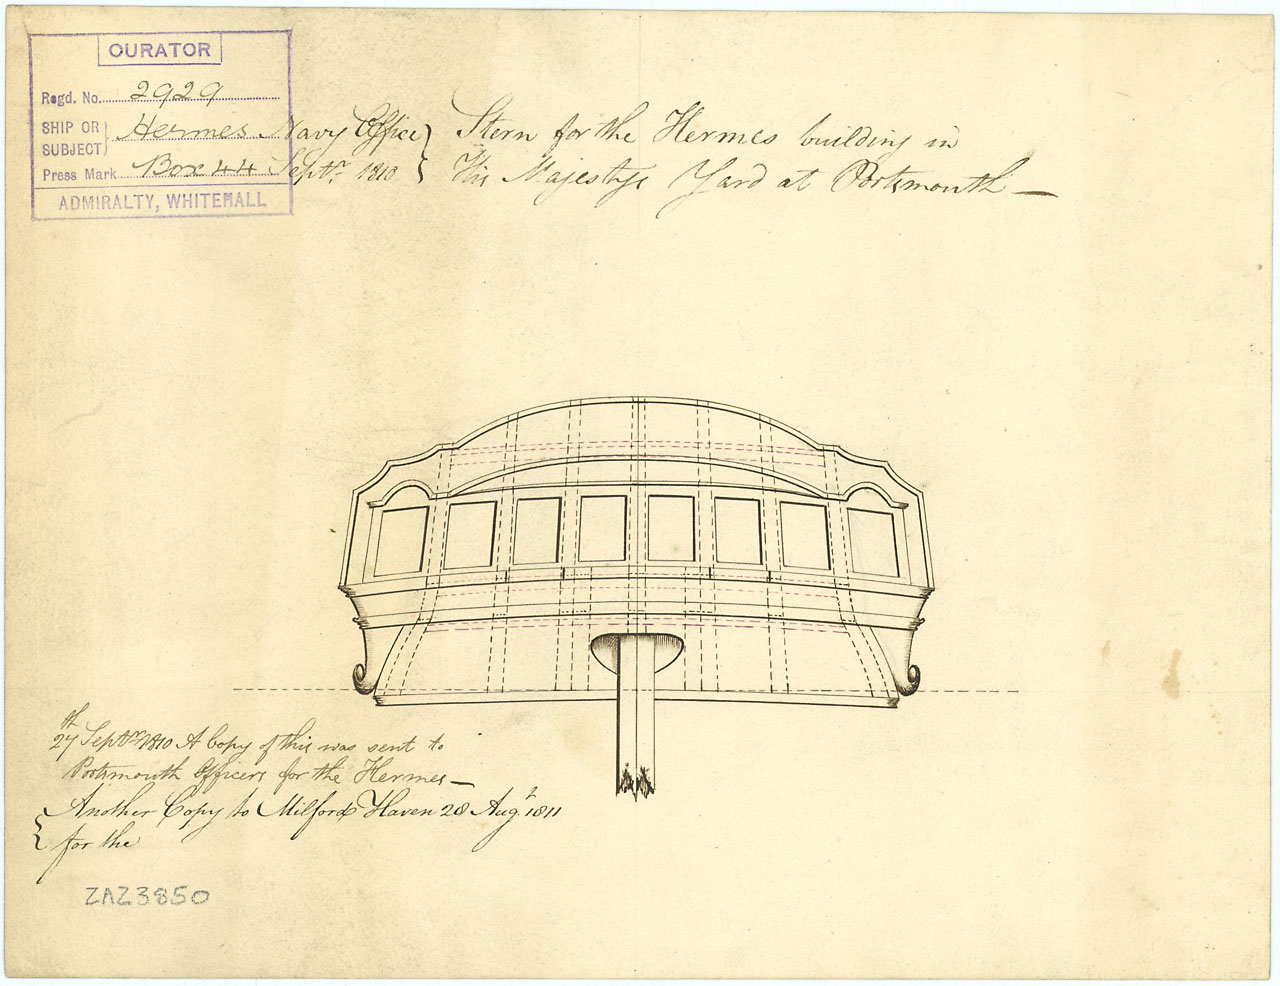 CURATOR
Regd. No. 2929
SHIP OR SUBJECT} Hermes
Press Mark Box 44
ADMIRALTY, WHITEHALL
Navy Office}
Septr. 1810}
Stern for the Hermes building in
His Majestys Yard at Portsmouth —
27th Septr. 1810 A Copy of this was sent to
Portsmouth Officers for the Hermes —
{ Another Copy to Milford Haven 28 Augt 1811
for the
ZAZ3850